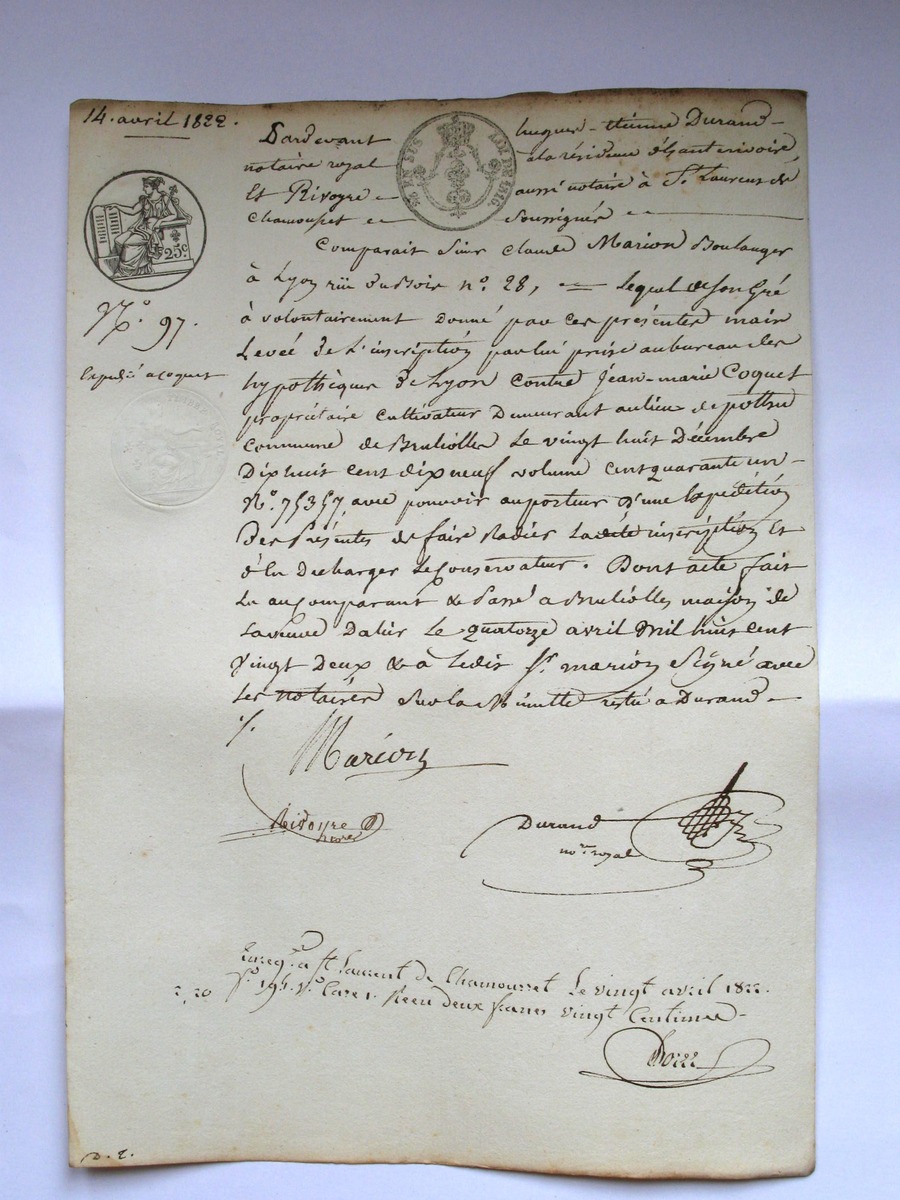 14. avril 1822.
Pardevant hugues-étienne Durand
notaire royal à la résidence d'hauterivoire
Et Rivoyre aussi notaire à St. Laurent de
chamousset soussignés
LOI DE 1816.
25c.
Comparait Sieur Claude Marion Boulanger
à Lyon rüe Dubois no. 28, Lequel de son Gré
à volontairement donné par ces présentes main
Levée de L'inscription par lui prise au bureau des
hypothèques de Lyon contre Jean-marie Coquet
propriétaire cultivateur Demeurant au lieu de
commune de Brulioles Le vingt huit Décembre
Dix huit cent dix neuf volume Cent quarante un
No. 75357, avec pouvoir au porteur d'une Expédition
Des Présentes de faire Radier Ladite inscription Et
d'En Décharger Le Conservateur. Dont acte fait
Lu au Comparant & Passé a Brulioles maison de
La veuve Le quatorze avril Mil huit cent
vingt Deux & à Ledit Sr. marion Signé avec
Les notaires Sur la Minutte resté a Durand
No. 97.
Expédié a Coquet
Marion
Rivoyre
nore
Durand
nore royal
Enregé. a St Laurent de Chamousset Le vingt avril 1822.
2,20 fo. 191. vo. Case 1. Reçu deux francs vingt Centimes
D. 2.